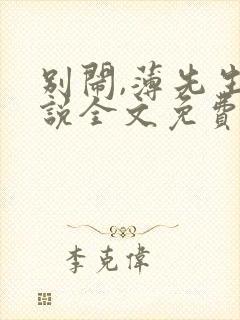 別鬧,薄先生
說全文免費
李克偉